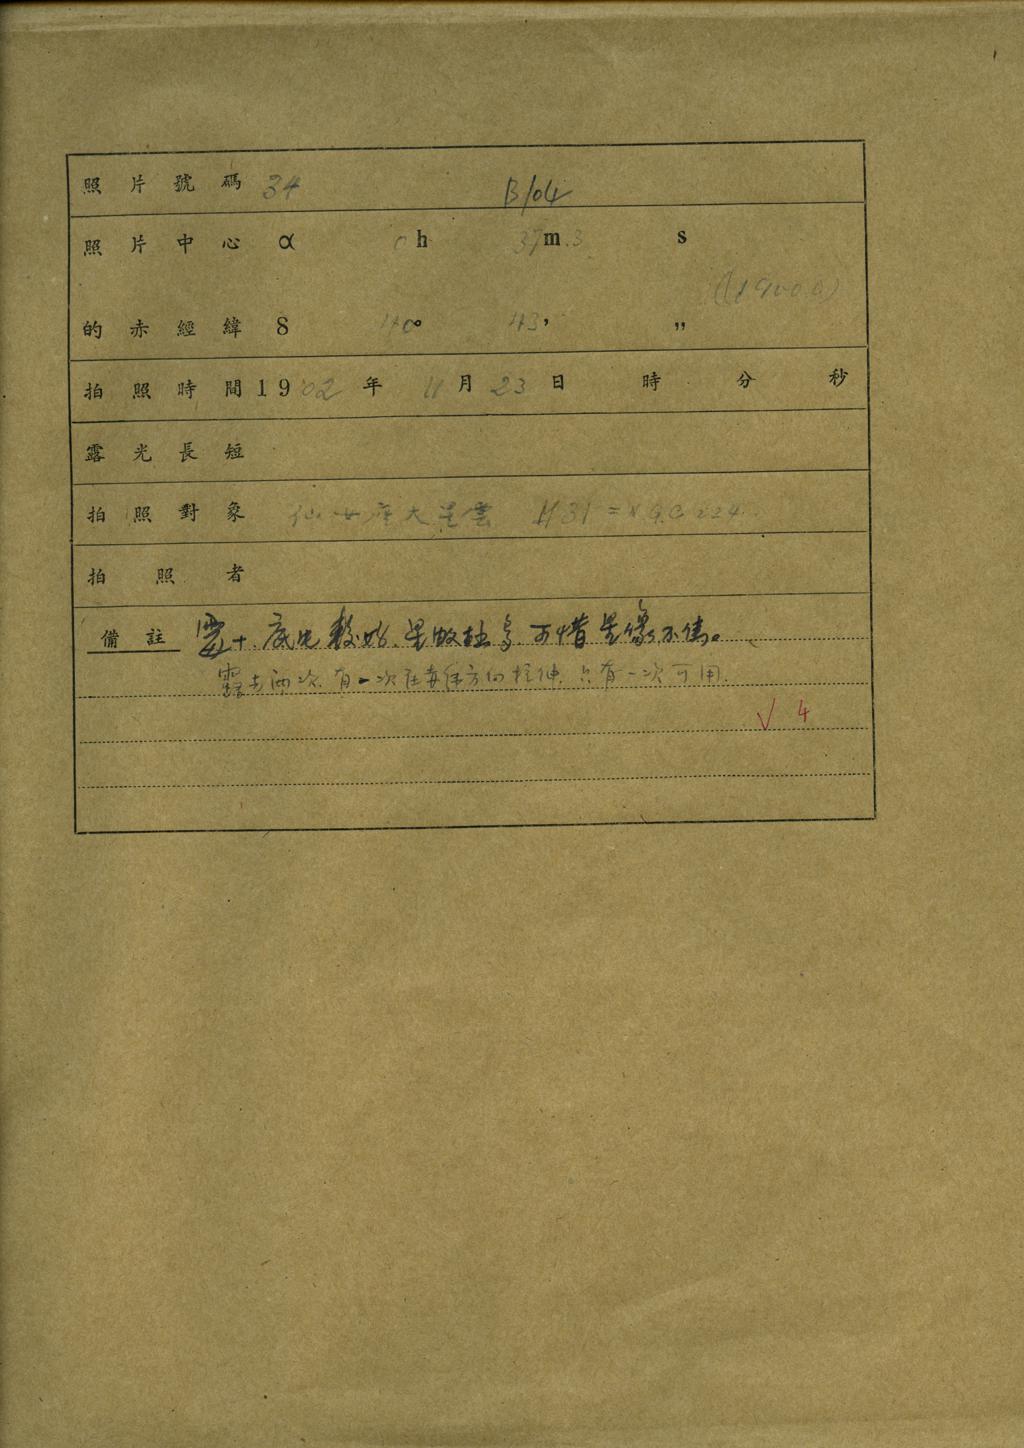 照片號碼 34 B104
照片中心 α 0h 37m.3 s
(1900.0)
的赤經緯 δ 40° 43' "
拍照時間 1902年 11月 23日 時 分 秒
露光長短
拍照對象 仙女座大星雲 M31 = N.G.C 224
拍照者
備註 底片較好，星數極多，可惜星像不佳。
露光兩次，有一次在赤緯方向拉伸，只有一次可用.
√ 4